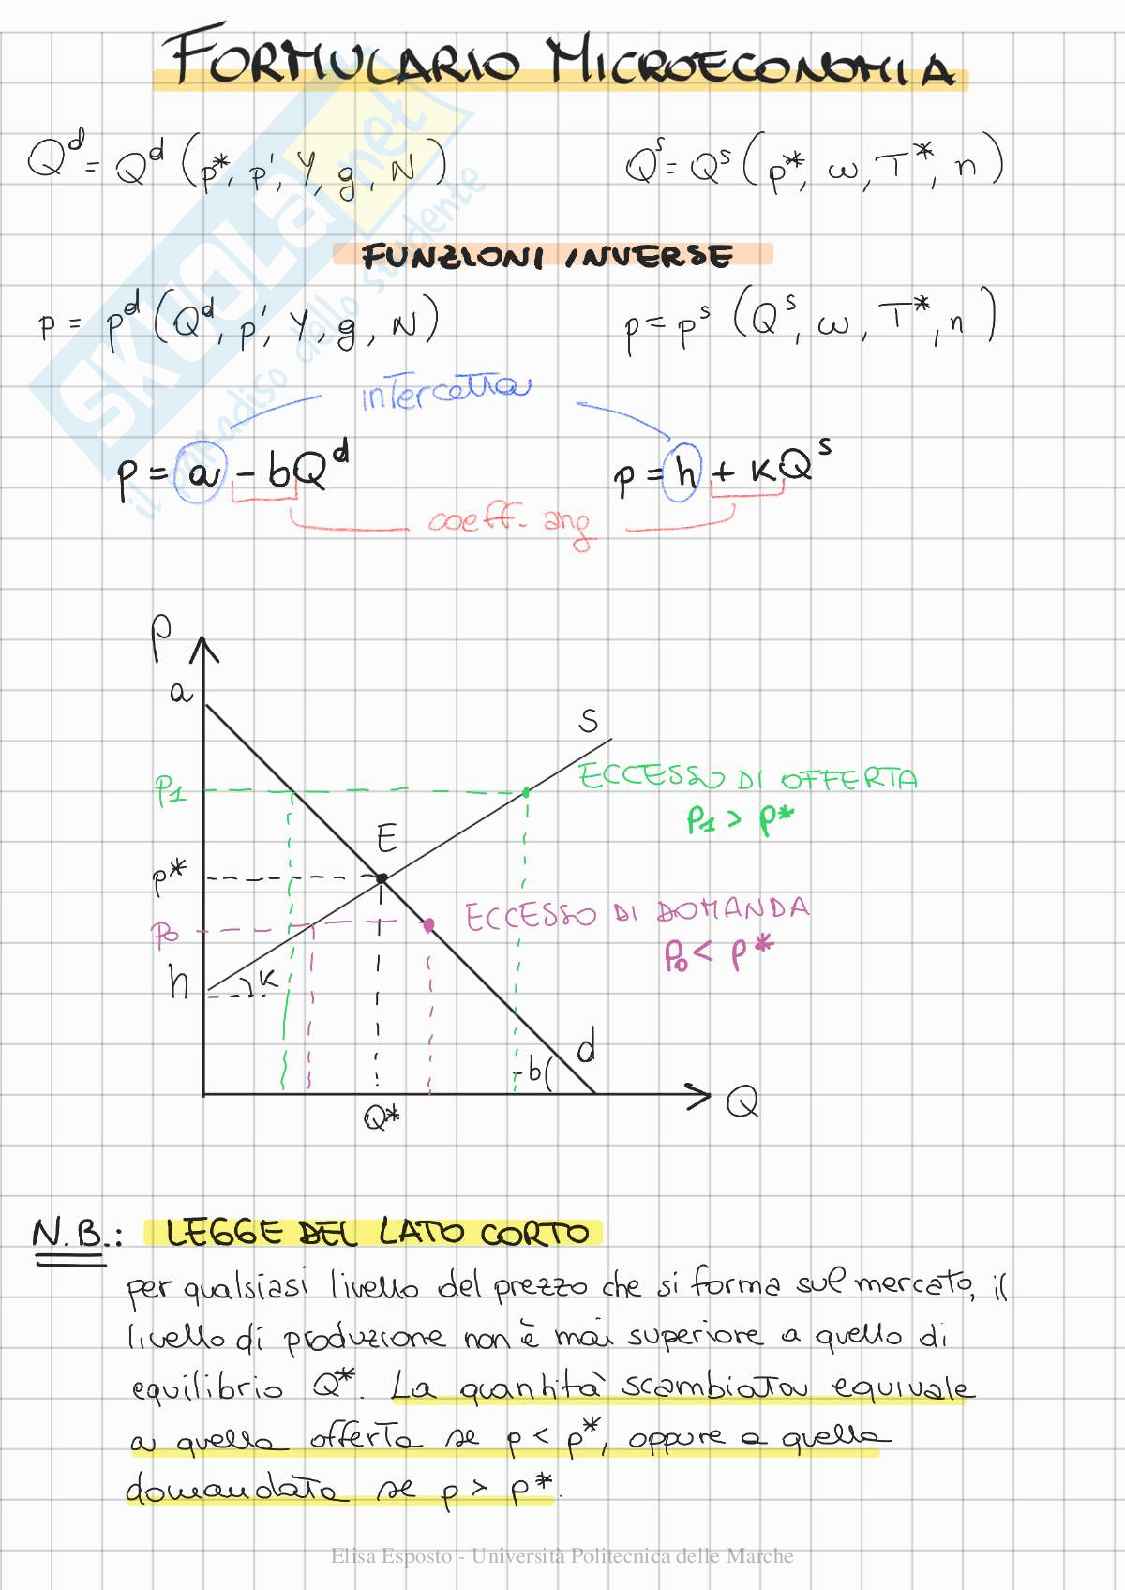 FORMULARIO MICROECONOMIA
Q^d = Q^d (p*, p', Y, g, N)
Q^s = Q^s (p*, w, T*, n)
FUNZIONI INVERSE
p = p^d (Q^d, p', Y, g, N)
p = p^s (Q^s, w, T*, n)
intercetta
p = a - bQ^d
p = h + kQ^s
coeff. ang
P
a
S
P1
ECCESSO DI OFFERTA
P1 > p*
E
p*
ECCESSO DI DOMANDA
P0
P0 < p*
h
K
d
-b
Q*
Q
N.B.: LEGGE DEL LATO CORTO
per qualsiasi livello del prezzo che si forma sul mercato, il
livello di produzione non è mai superiore a quello di
equilibrio Q*. La quantità scambiata equivale
a quella offerta se p < p*, oppure a quella
domandata se p > p*.
Elisa Esposto - Università Politecnica delle Marche
SKUOLA.net
il paradiso dello studente